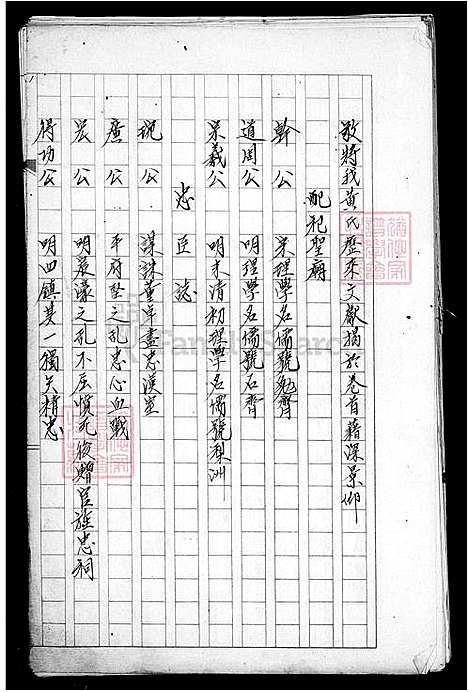 敬將我黃氏歷系文獻揭於卷首藉深景仰
配祀聖廟
幹公 宋理學名儒號勉齋
道周公 明理學名儒號石齋
宗羲公 明末清初理學名儒號梨洲
忠臣誌
琬公 謀誅董卓盡忠漢室
廣公 平府堅之乱忠心血戰
宏公 明宸濠之乱不屈憤死後贈官旌忠祠
得功公 明四鎮其一獨矢精忠
FamilySearch